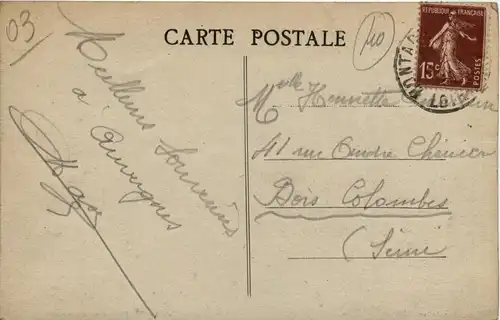 03
CARTE POSTALE
110
REPUBLIQUE FRANÇAISE
15c
POSTES
LOIR
Meilleurs Souvenirs
d'Auvergne
Mlle Henriette
41 rue André Chénier
Bois Colombes
(Seine